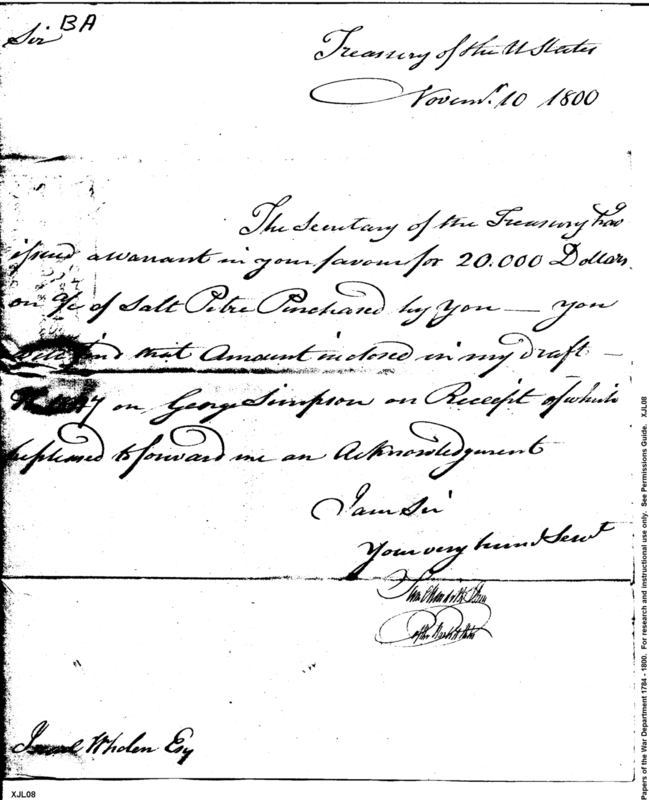 BA
Sir
Treasury of the U States
Novemr. 10 1800
The Secretary of the Treasury has
issued a warrant in your favour for 20.000 Dollars
on a/c of Salt Petre Purchased by you — you
will find that Amount inclosed in my draft —
on George Simpson on Receipt of which
be pleased to forward me an Acknowledgment
I am Sir
Your very humb Servt
Israel Whelen Esq
XJL08
Papers of the War Department 1784 - 1800. For research and instructional use only. See Permissions Guide. XJL08